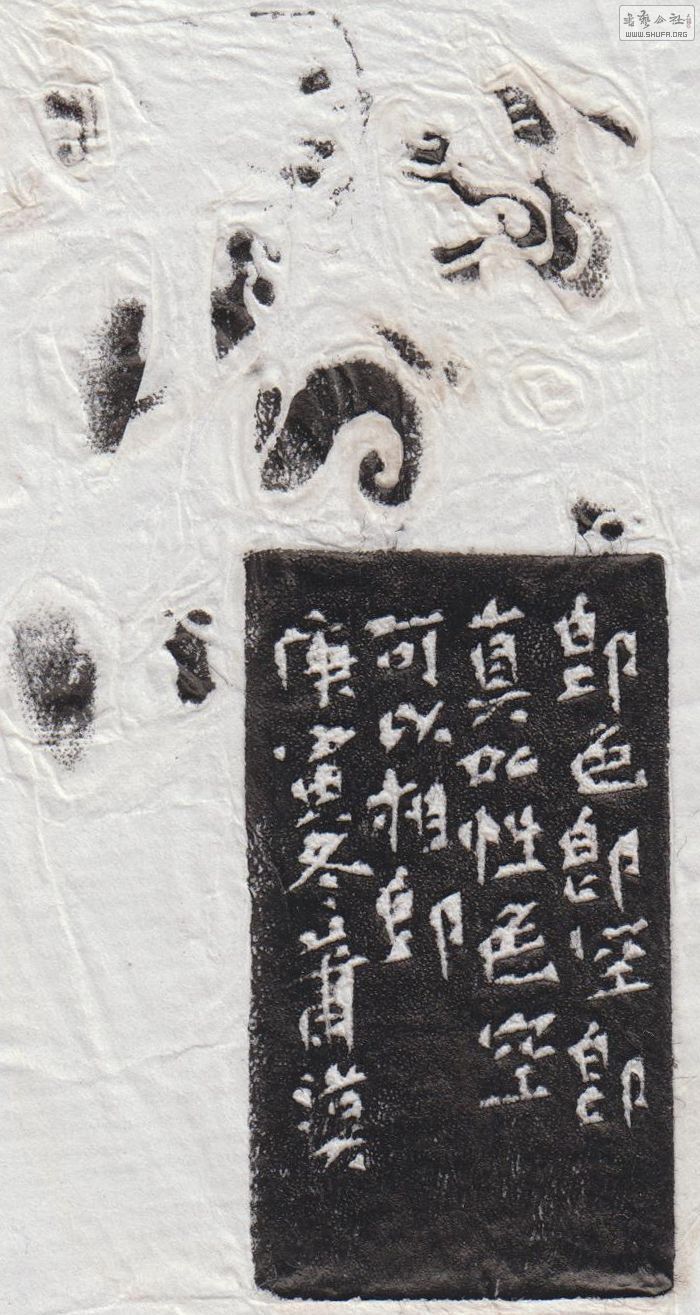 書藝公社
WWW.SHUFA.ORG
即色即空即
真如性色空
可以相即
庚寅冬